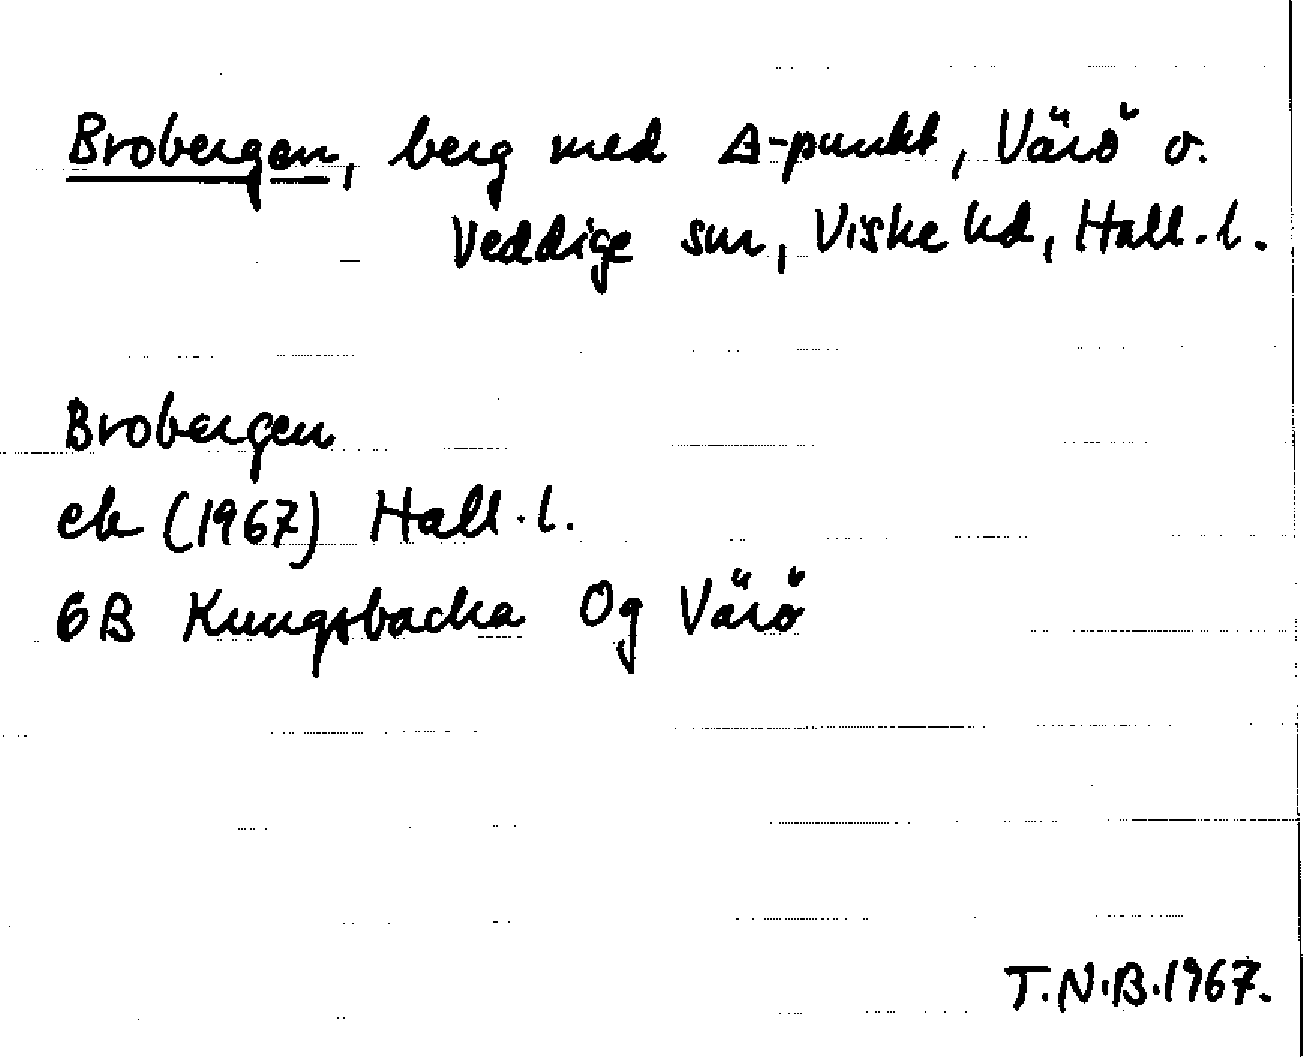 Brobergen, berg med Δ-punkt, Värö o.
Veddige snr, Viske hd, Hall. l.
Brobergen
ek (1967) Hall. l.
6B Kungsbacka 0g Värö
T.N.B. 1967.